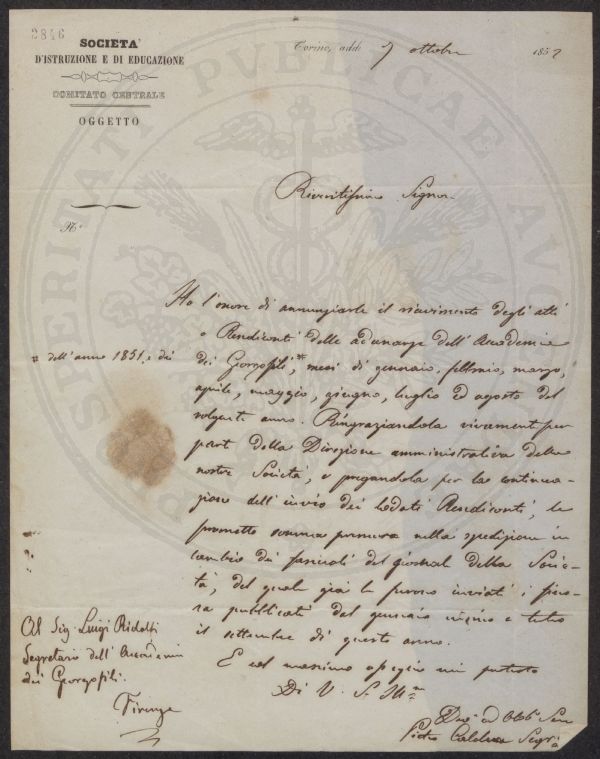 2846
SOCIETA'
D'ISTRUZIONE E DI EDUCAZIONE
COMITATO CENTRALE
OGGETTO
Torino, addì 7 ottobre 1852
Riveritissimo Signor
N.°
Ho l'onore di annunziarle il ricevimento degli atti
o Rendiconti delle adunanze dell'Accademia
# dell'anno 1851, e dei
dei Georgofili,# mesi di gennaio, febbraio, marzo,
aprile, maggio, giugno, luglio ed agosto del
volgente anno. Ringraziandola vivament per
part della Direzione amministrativa della
nostra Società, e pregandola per la continua-
zione dell'invio dei lodati Rendiconti, le
prometto somma premura nella spedizione in
cambio dei fascicoli del giornale della Socie-
tà, del quale già le furono inviati i fino-
ra pubblicati dal gennaio a tutto
il settembre di questo anno.
E col massimo ossequio mi protesto
Di V. S. Ill.ma
Al Sig. Luigi Ridolfi
Segretario dell'Accademia
dei Georgofili.
Firenze
Dev.° ed Obb.° Serv
Pietro Segr.°
PUBLICAE
PROSPERITATI
AUGENDAE